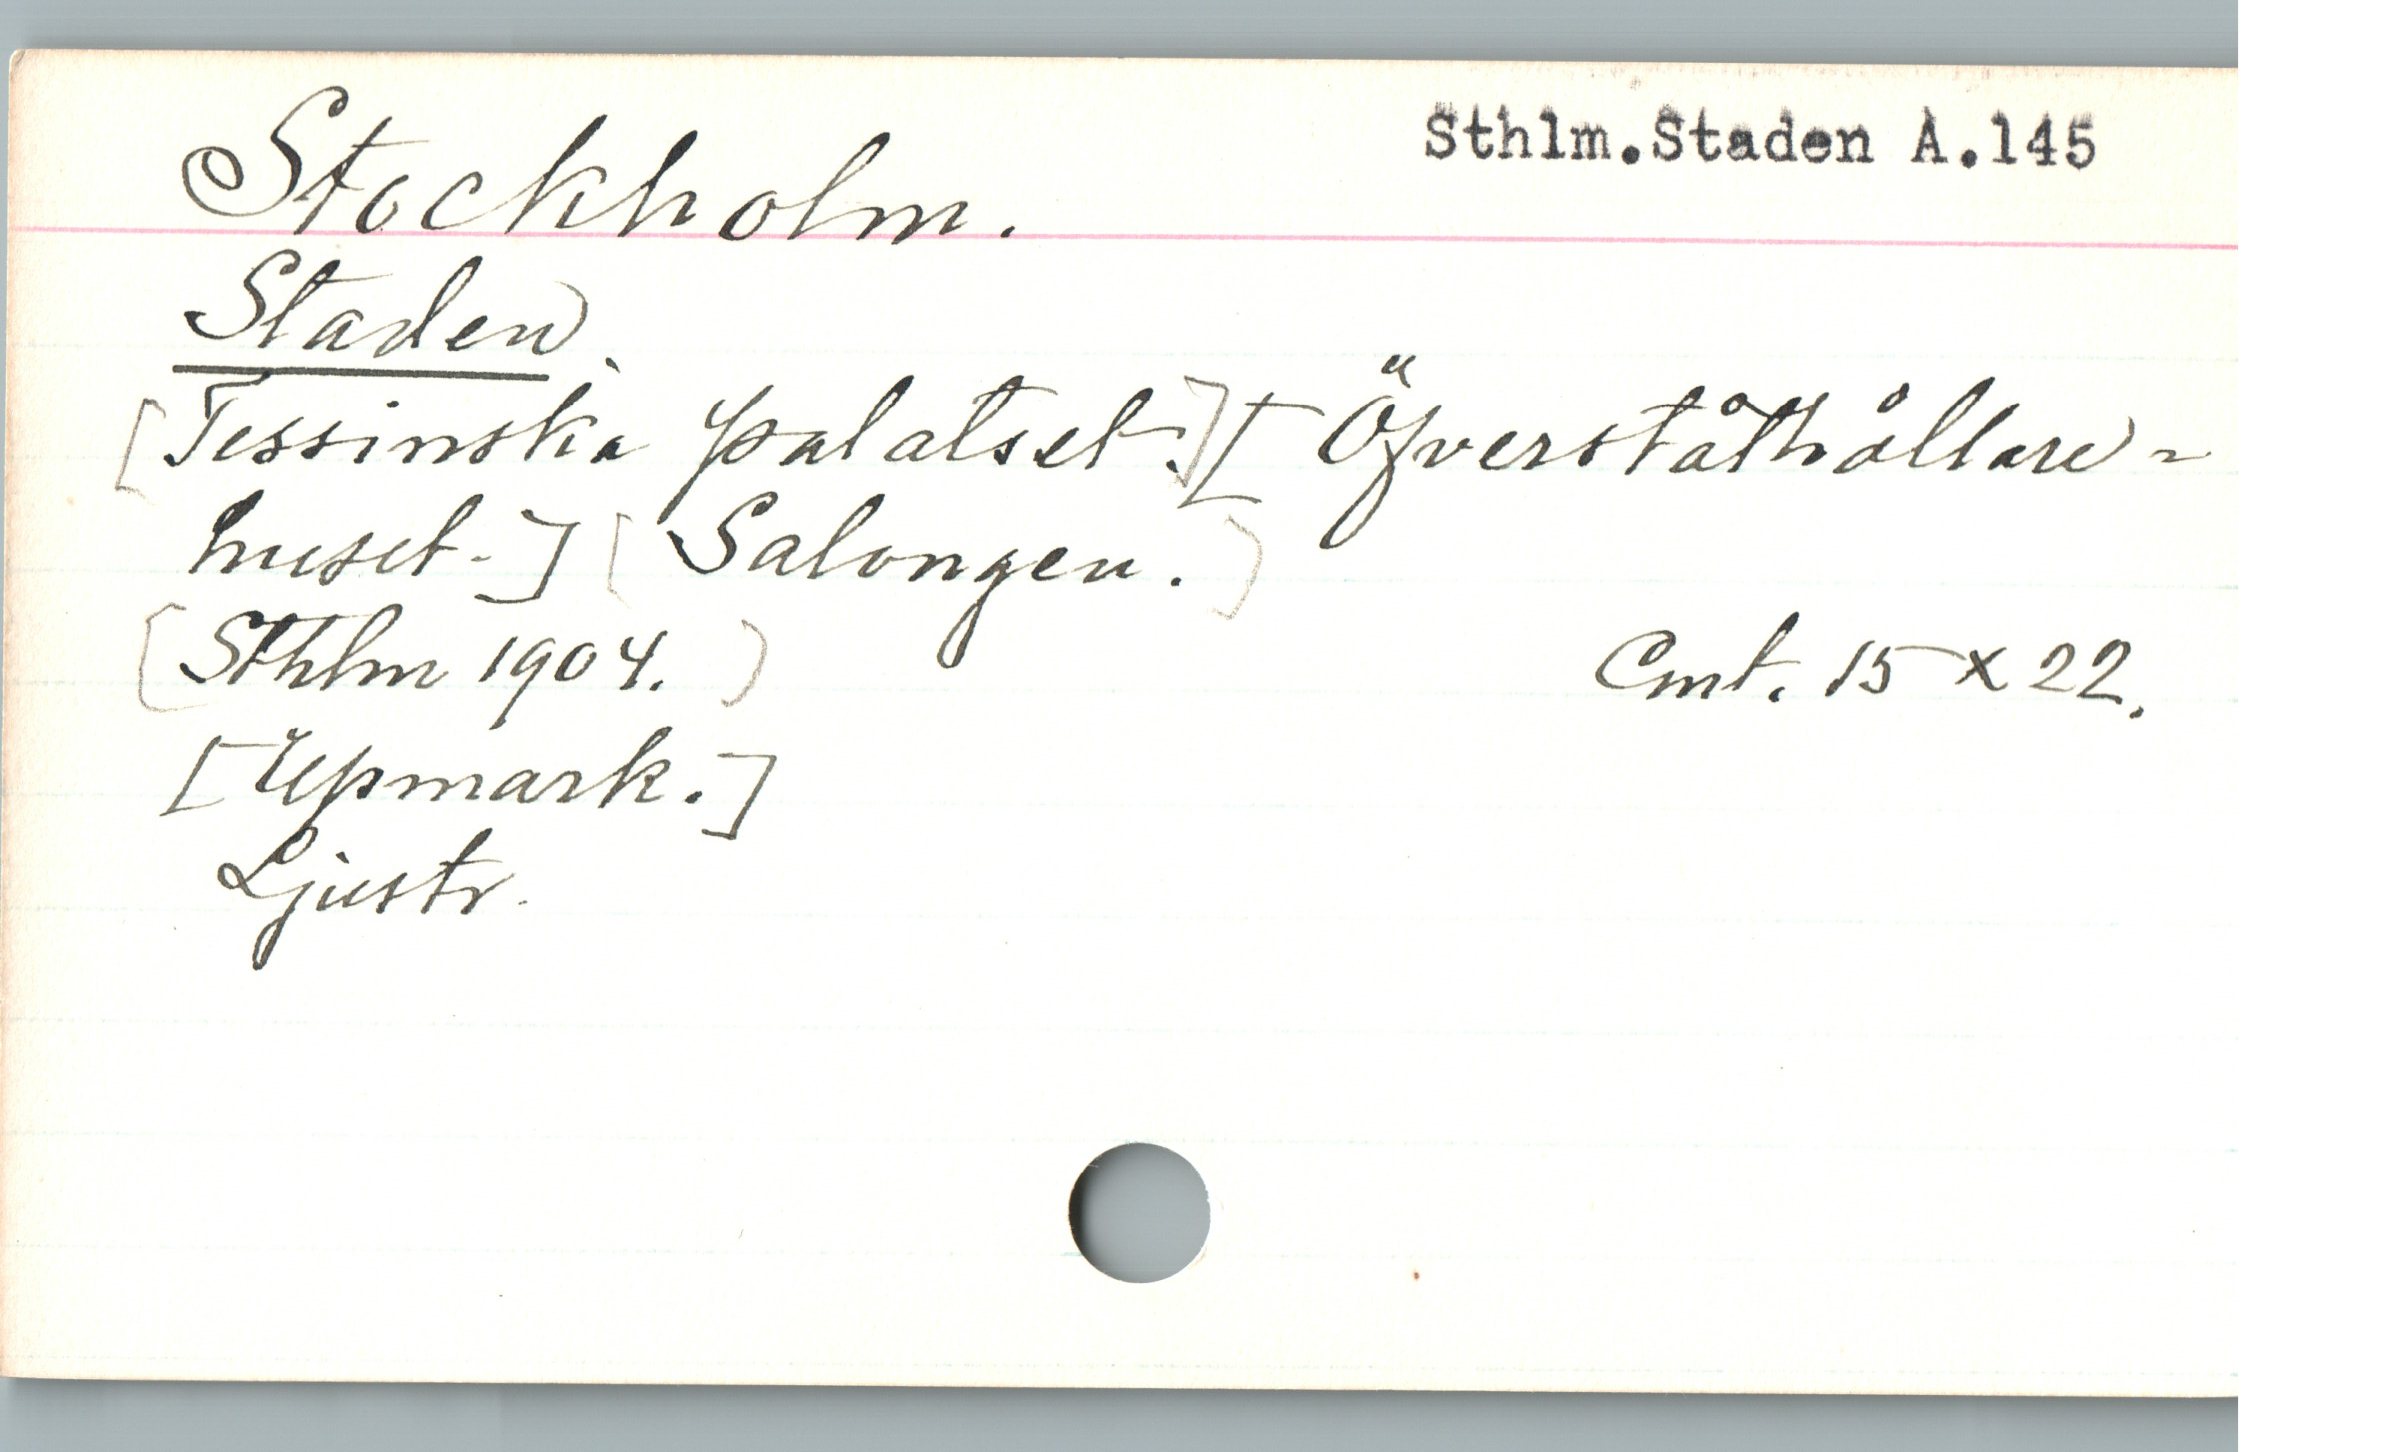 Sthlm.Staden A.145
Stockholm.
Staden.
[Tessinska palatset.] [Öfverståthållare-
huset.] [Salongen.]
[Sthlm 1904.) Cmt. 15 x 22.
[Upmark.]
Ljustr.